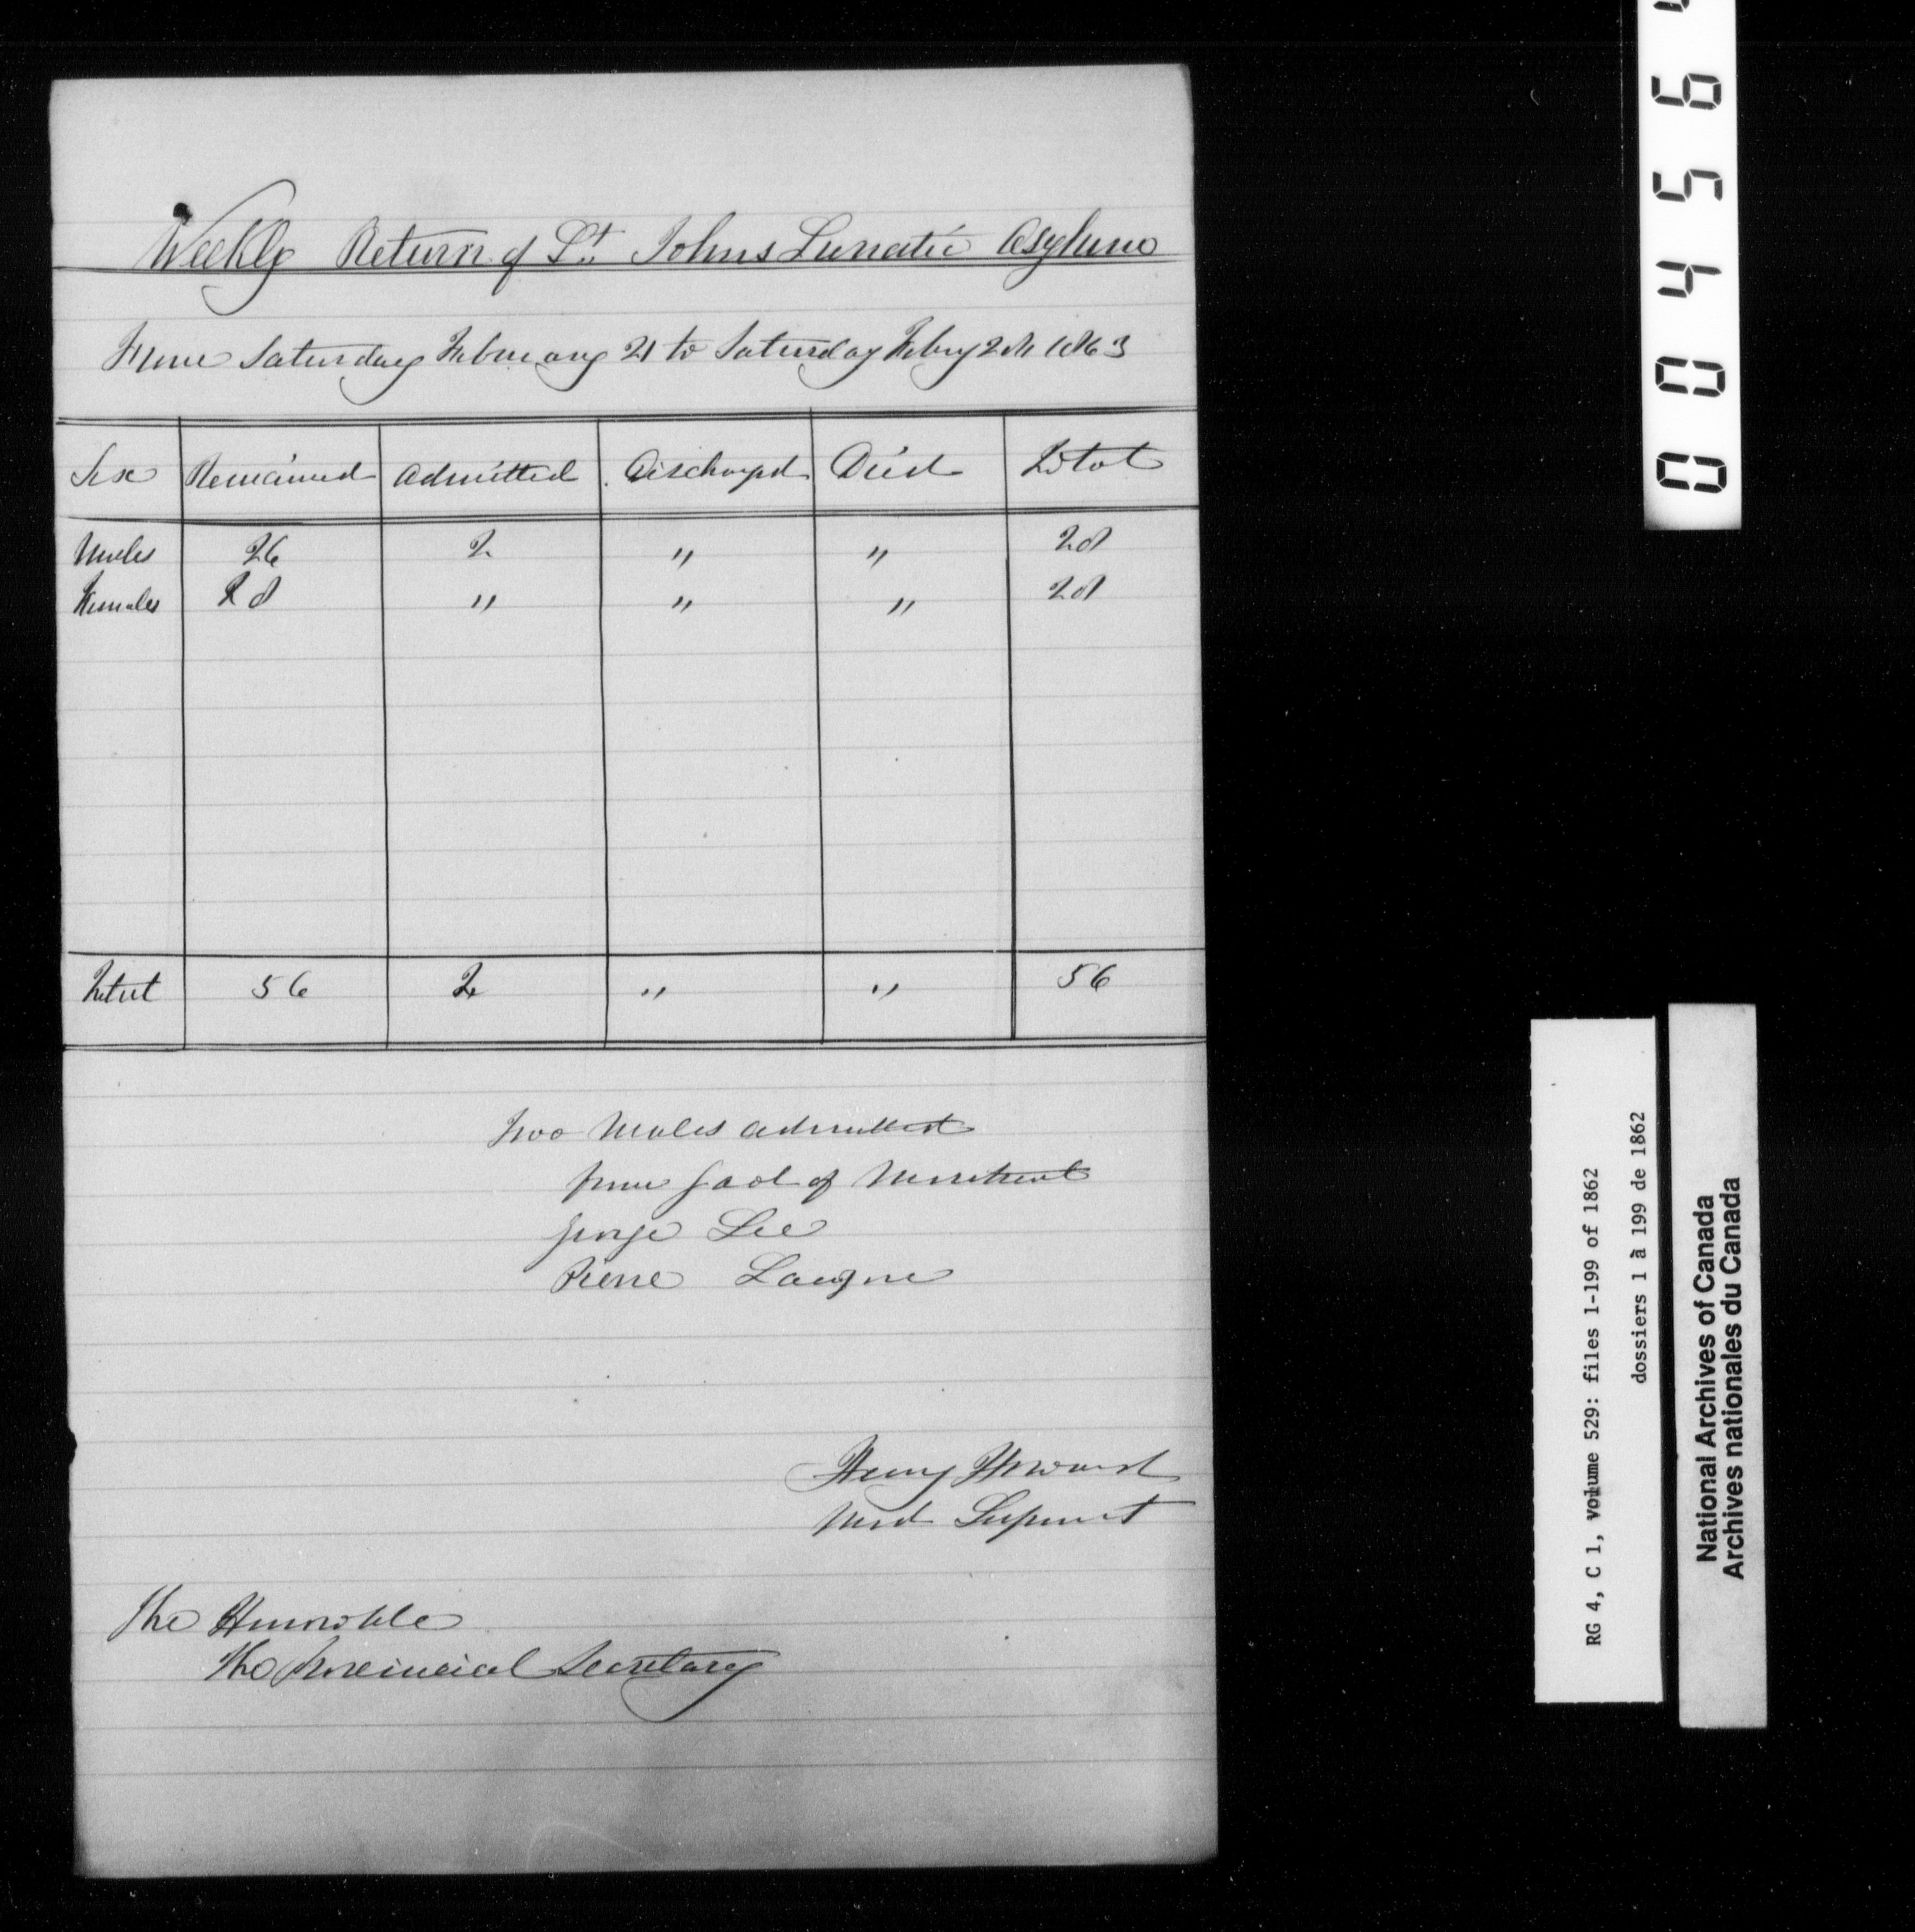 Weekly Return of St. Johns Lunatic Asylum
From Saturday February 21 to Saturday Febry 28 1863
Sex Remained Admitted Discharged Died Total
Males 26 2 " " 28
Females 28 " " " 28
Total 56 2 " " 56
Two Males admitted
from Gaol of Montreal
George Lee
Pierre
Henry Howard
Med Superint
The Honorable
The Provincial Secretary
00456
RG 4, C 1, volume 529: files 1-199 of 1862
dossiers 1 à 199 de 1862
National Archives of Canada
Archives nationales du Canada